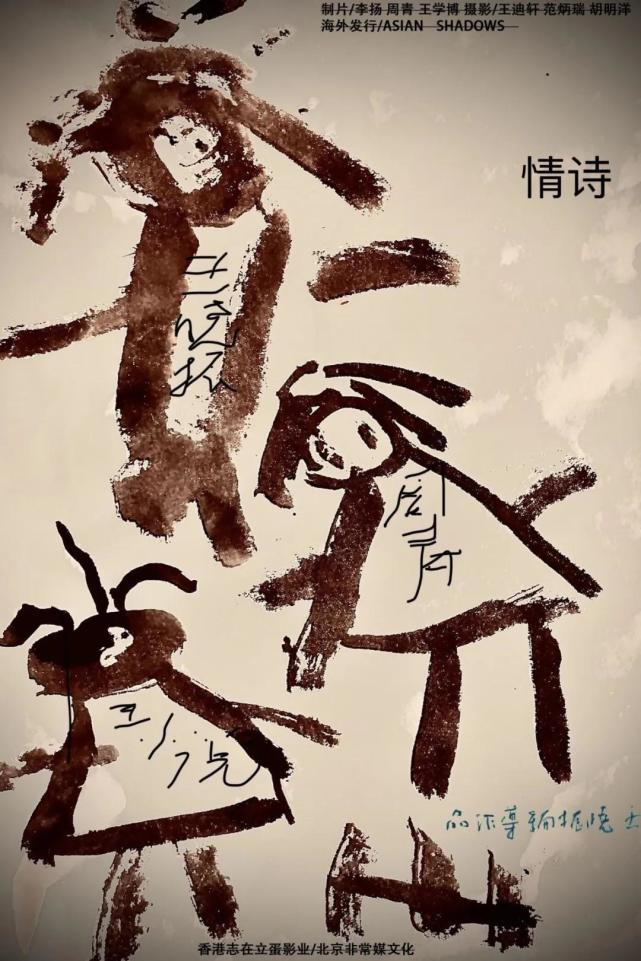 制片/李扬 周青 王学博 摄影/王迪轩 范炳瑞 胡明洋
海外发行/ASIAN SHADOWS
情诗
王晓振
周青
王晓振编導作品
香港志在立蛋影业/北京非常媒文化